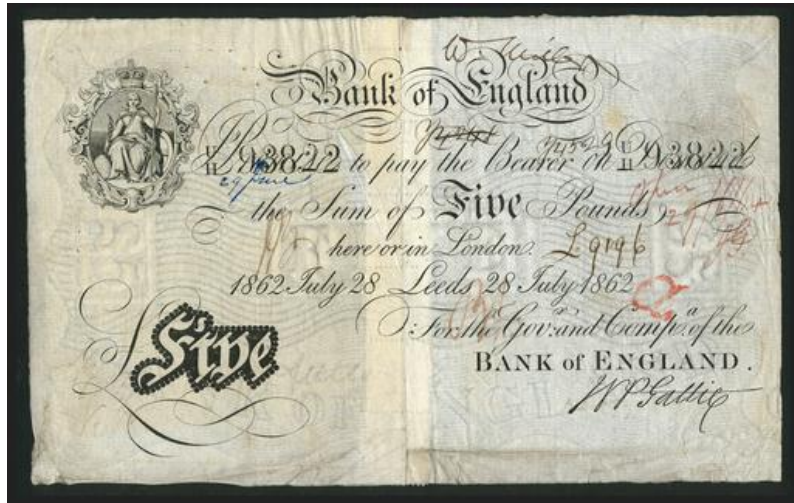 Bank of England
U/H 93822 to pay the Bearer on U/H 93822
29 June
the Sum of Five Pounds
here or in London.
L9196
1862 July 28 Leeds 28 July 1862
: For the Govr. and Compa. of the
BANK of ENGLAND.
Five
W P Gattie